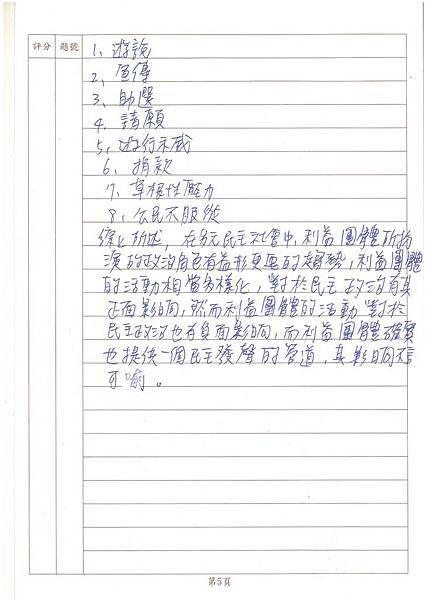 評分 題號
1、遊說
2、宣傳
3、助選
4、請願
5、遊行示威
6、捐款
7、草根性壓力
8、公民不服從
綜上所述，在多元民主社會中，利益團體所扮
演的政治角色有益形重要的趨勢，利益團體
的活動相當多樣化，對於民主政治有其
正面影响，然而利益團體的活動對於
民主政治也有負面影响，而利益團體確實
也提供一個民主發聲的管道，其影响不言
可喻。
第5頁